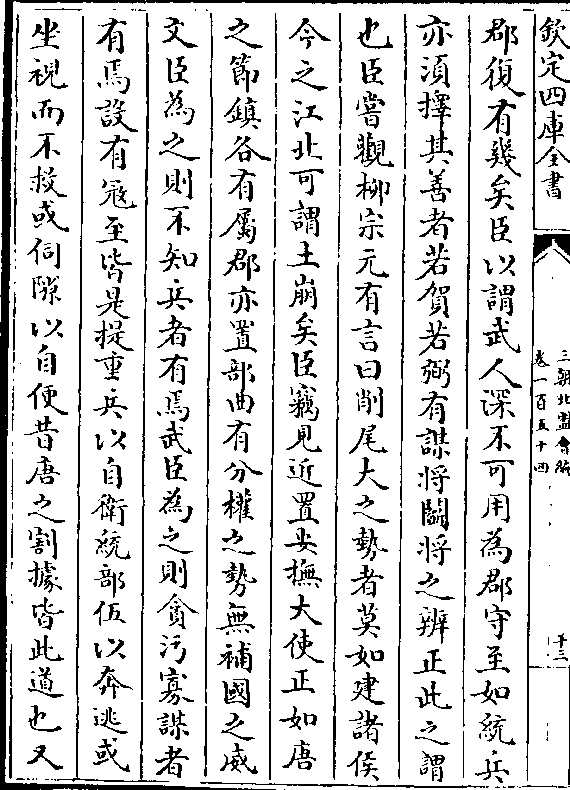 欽定四庫全書
三朝北盟會編
卷一百五十四
十三
郡復有幾矣臣以謂武人深不可用為郡守至如統兵
亦須擇其善者若賀若弼有謀將鬭將之辨正此之謂
也臣嘗觀柳宗元有言曰削尾大之勢者莫如建諸侯
今之江北可謂土崩矣臣竊見近置安撫大使正如唐
之節鎮各有屬郡亦置部曲有分權之勢無補國之威
文臣為之則不知兵者有焉武臣為之則貪污寡謀者
有焉設有寇至皆是提重兵以自衛統部伍以奔逃或
坐視而不救或伺隙以自便昔唐之割據皆此道也又